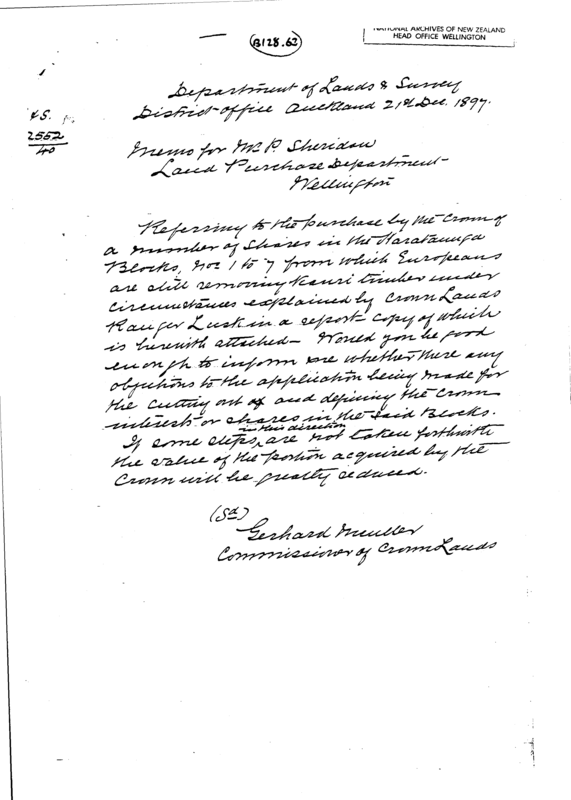 B128.62
NATIONAL ARCHIVES OF NEW ZEALAND
HEAD OFFICE WELLINGTON
Department of Lands & Survey
District Office Auckland 21st Dec. 1897.
2552
40
Memo for Mr P. Sheridan
Land Purchase Department
Wellington
Referring to the purchase by the Crown of
a number of shares in the Harataunga
Blocks, Nos 1 to 7 from which Europeans
are still removing Kauri timber under
circumstances explained by Crown Lands
Ranger Lusk in a report copy of which
is herewith attached - Would you be good
enough to inform me whether there any
objections to the application being made for
the cutting out of and defining the Crown
interests or shares in the said Blocks.
If some steps in this direction are not taken forthwith
the value of the portion acquired by the
Crown will be greatly reduced.
(Sd)
Gerhard Mueller
Commissioner of Crown Lands